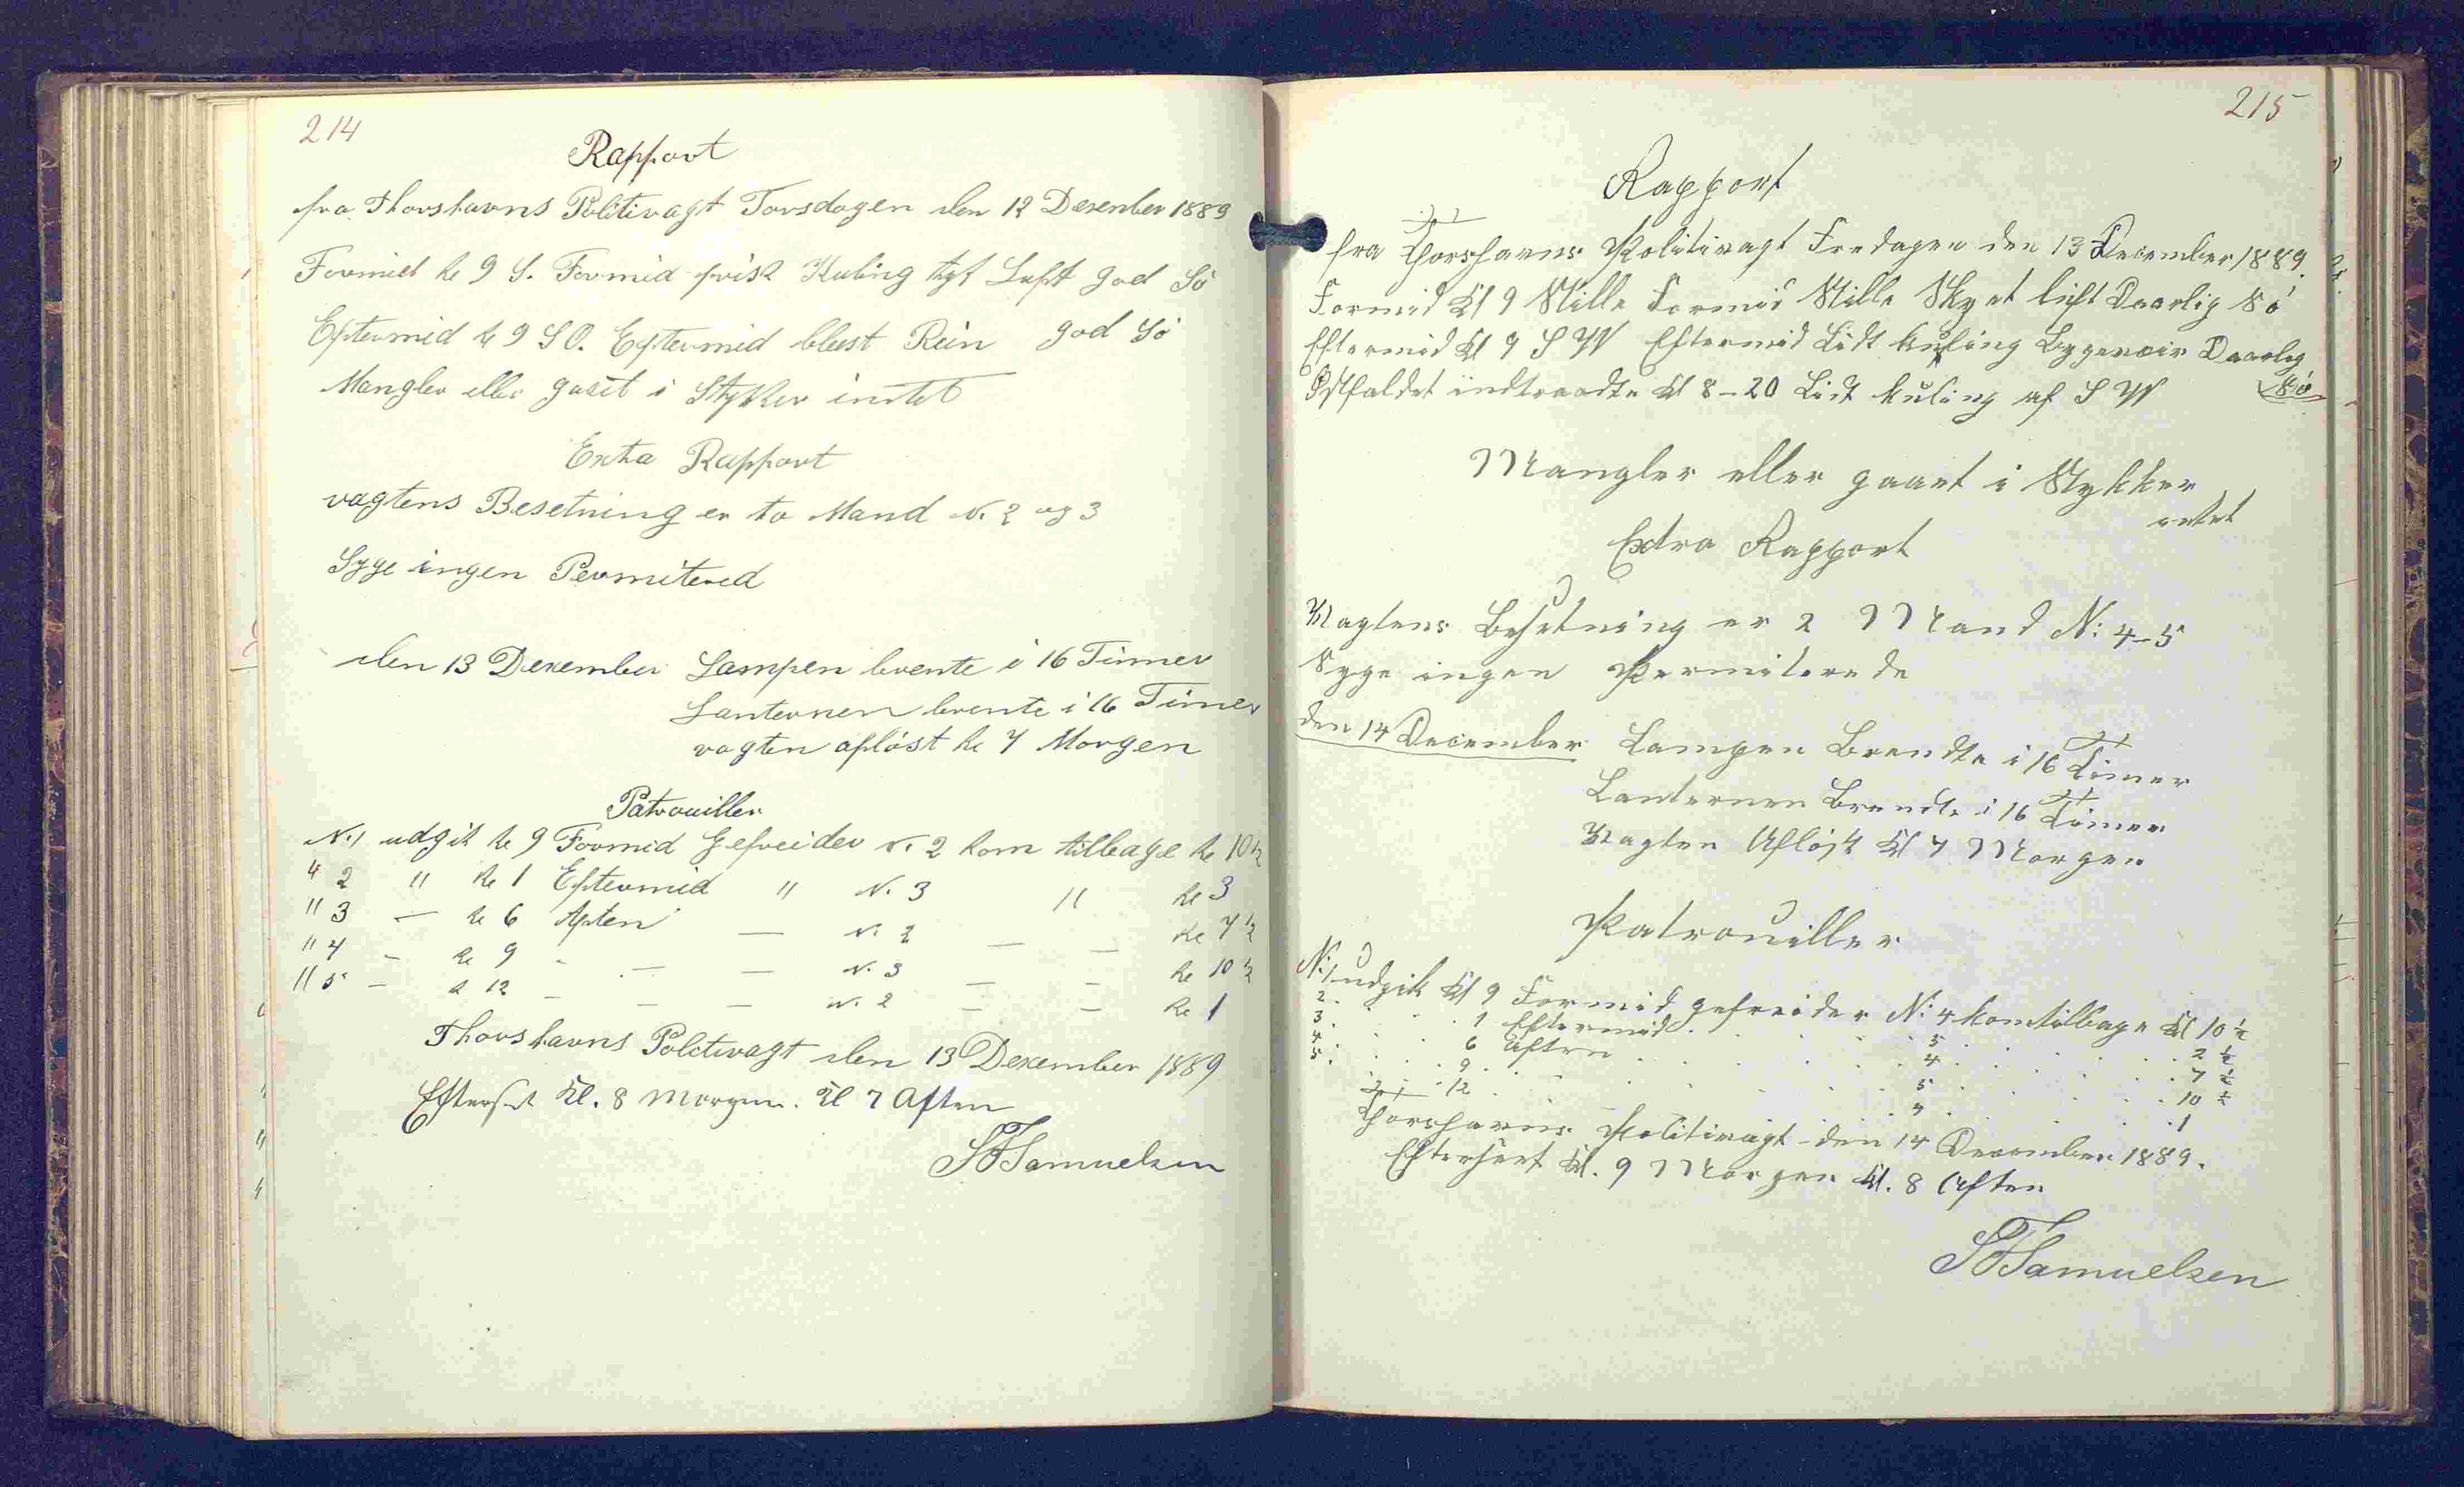 214
Rapport
fra Thorshavns Politivagt Torsdagen den 12 Desember 1889
Formid kl 9 S. Formid frisk Kuling tyk Luft god Sö
Eftermid kl 9 SO. Eftermid blest Rein god Sö
Mangler eller gaaet i Stykker intet
Extra Rapport
vagtens Besetning er to Mand N. 2 og 3
Syge ingen Permitered
den 13 Desember Lampen brente i 16 Timer
Lanternen brente i 16 Timer
vagten aflöst kl 7 Morgen
Patrouiller
N. 1 udgik kl 9 Formid Gefreider N. 2 kom tilbage kl 10½
" 2 " kl 1 Eftermid " N. 3 " kl 3
" 3 — kl 6 Aften — N. 2 — — kl 7½
" 4 - kl 9 - — — N. 3 — — kl 10½
" 5 — kl 12 — — — N. 2 — — kl 1
Thorshavns Politivagt den 13 Desember 1889
Efterset Kl. 8 Morgen. Kl 7 Aften
SFSamuelsen
215
Rapport
fra Thorshavns Politivagt Fredagen den 13 December 1889.
Formid Kl 9 Stille Formid Stille Skyet luft Daarlig Sö
Eftermid Kl 9 S W Eftermid Lidt kuling Bygeveir Daarlig
Sö
Østfaldet indtraadte Kl 8-20 Lidt kuling af S W
Mangler eller gaaet i Stykker
intet
Extra Rapport
Vagtens Besetning er 2 Mand N: 4-5
Syge ingen Permiterede
den 14 December Lampen Brendte i 16 Timer
Lanternen Brendte i 16 Timer
Vagten Aflöst Kl 7 Morgen
Patrouiller
N: 1 udgik Kl 9 Formid gefreider N: 4 kom tilbage Kl 10 ½
2. . . . 1 Eftermid . . . . 5 . . . . 2 ½
3. . . . 6 Aften . . . . 4 . . . . 7 ½
4. . . . 9 . . . . 5 . . . . 10 ½
5. . . . 12 . . . . 4 . . . . 1
Thorshavns Politivagt den 14 December 1889.
Efterseet Kl. 9 Morgen Kl. 8 Aften
SFSamuelsen